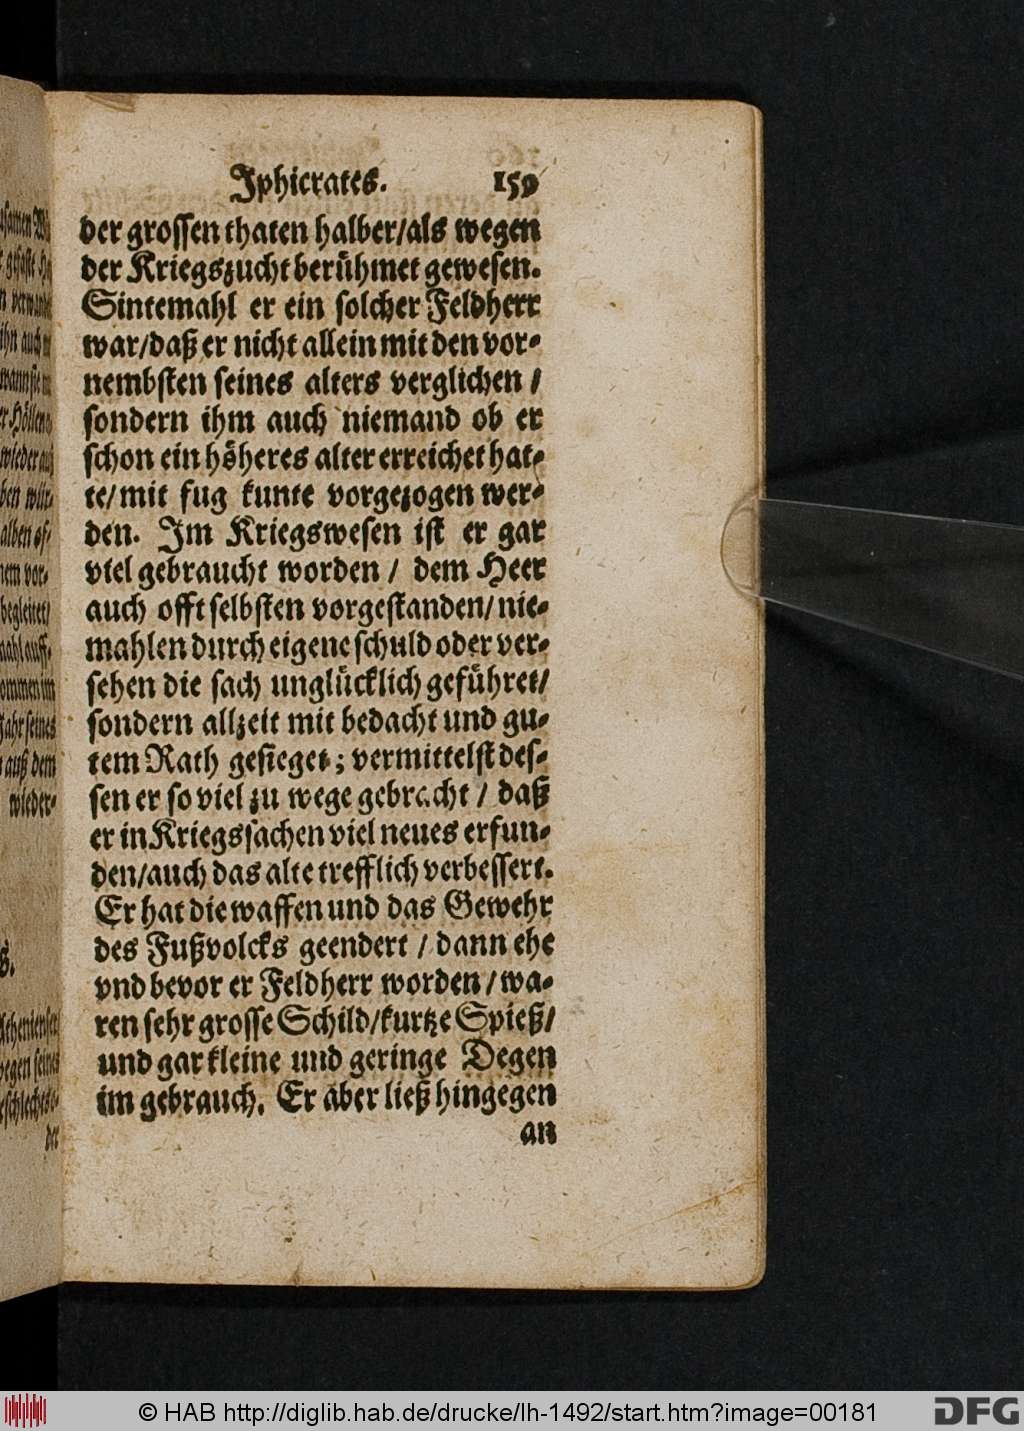 Iphicrates. 159
der grossen thaten halber/als wegen
der Kriegszucht berühmet gewesen.
Sintemahl er ein solcher Feldherr
war/daß er nicht allein mit den vor-
nembsten seines alters verglichen /
sondern ihm auch niemand ob er
schon ein höheres alter erreichet hat-
te/mit fug kunte vorgezogen wer-
den. Im Kriegswesen ist er gar
viel gebraucht worden / dem Heer
auch offt selbsten vorgestanden/nie-
mahlen durch eigene schuld oder ver-
sehen die sach unglücklich geführet/
sondern allzeit mit bedacht und gu-
tem Rath gesieget; vermittelst des-
sen er so viel zu wege gebracht / daß
er in Kriegssachen viel neues erfun-
den/auch das alte trefflich verbessert.
Er hat die waffen und das Gewehr
des Fußvolcks geendert / dann ehe
vnd bevor er Feldherr worden / wa-
ren sehr grosse Schild/kurtze Spieß/
und gar kleine und geringe Degen
im gebrauch. Er aber ließ hingegen
an
wieder-
© HAB http://diglib.hab.de/drucke/lh-1492/start.htm?image=00181
DFG